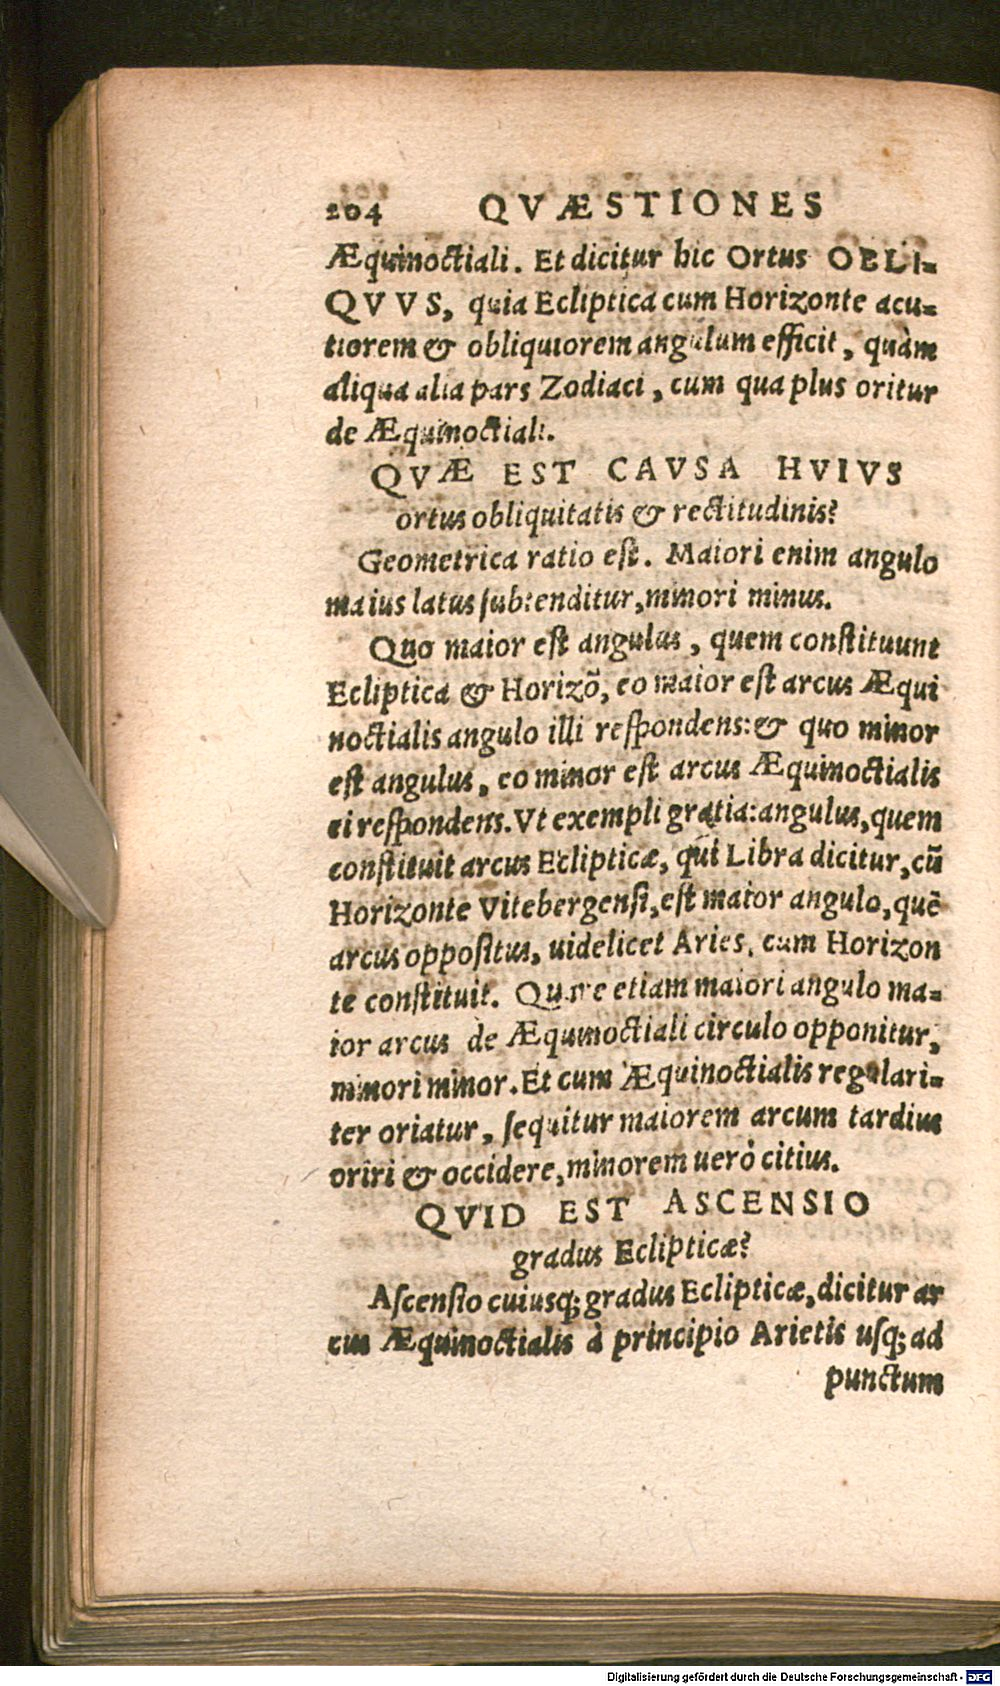 204 QVÆSTIONES
Æquinoctiali. Et dicitur hic Ortus OBLI=
QVVS, quia Ecliptica cum Horizonte acu=
tiorem & obliquiorem angulum efficit, quàm
aliqua alia pars Zodiaci, cum qua plus oritur
de Æquinoctiali.
QVÆ EST CAVSA HVIVS
ortus obliquitatis & rectitudinis?
Geometrica ratio est. Maiori enim angulo
maius latus subtenditur, minori minus.
Quo maior est angulus, quem constituunt
Ecliptica & Horizō, eo maior est arcus Æqui
noctialis angulo illi respondens: & quo minor
est angulus, eo minor est arcus Æquinoctialis
ei respondens. Vt exempli gratia: angulus, quem
constituit arcus Eclipticæ, qui Libra dicitur, cū
Horizonte Vitebergensi, est maior angulo, quē
arcus oppositus, uidelicet Aries, cum Horizon
te constituit. Quare etiam maiori angulo ma=
ior arcus de Æquinoctiali circulo opponitur,
minori minor. Et cum Æquinoctialis regulari=
ter oriatur, sequitur maiorem arcum tardius
oriri & occidere, minorem uerò citius.
QVID EST ASCENSIO
gradus Eclipticæ?
Ascensio cuiusq; gradus Eclipticæ, dicitur ar
cus Æquinoctialis à principio Arietis usq; ad
punctum
Digitalisierung gefördert durch die Deutsche Forschungsgemeinschaft - DFG